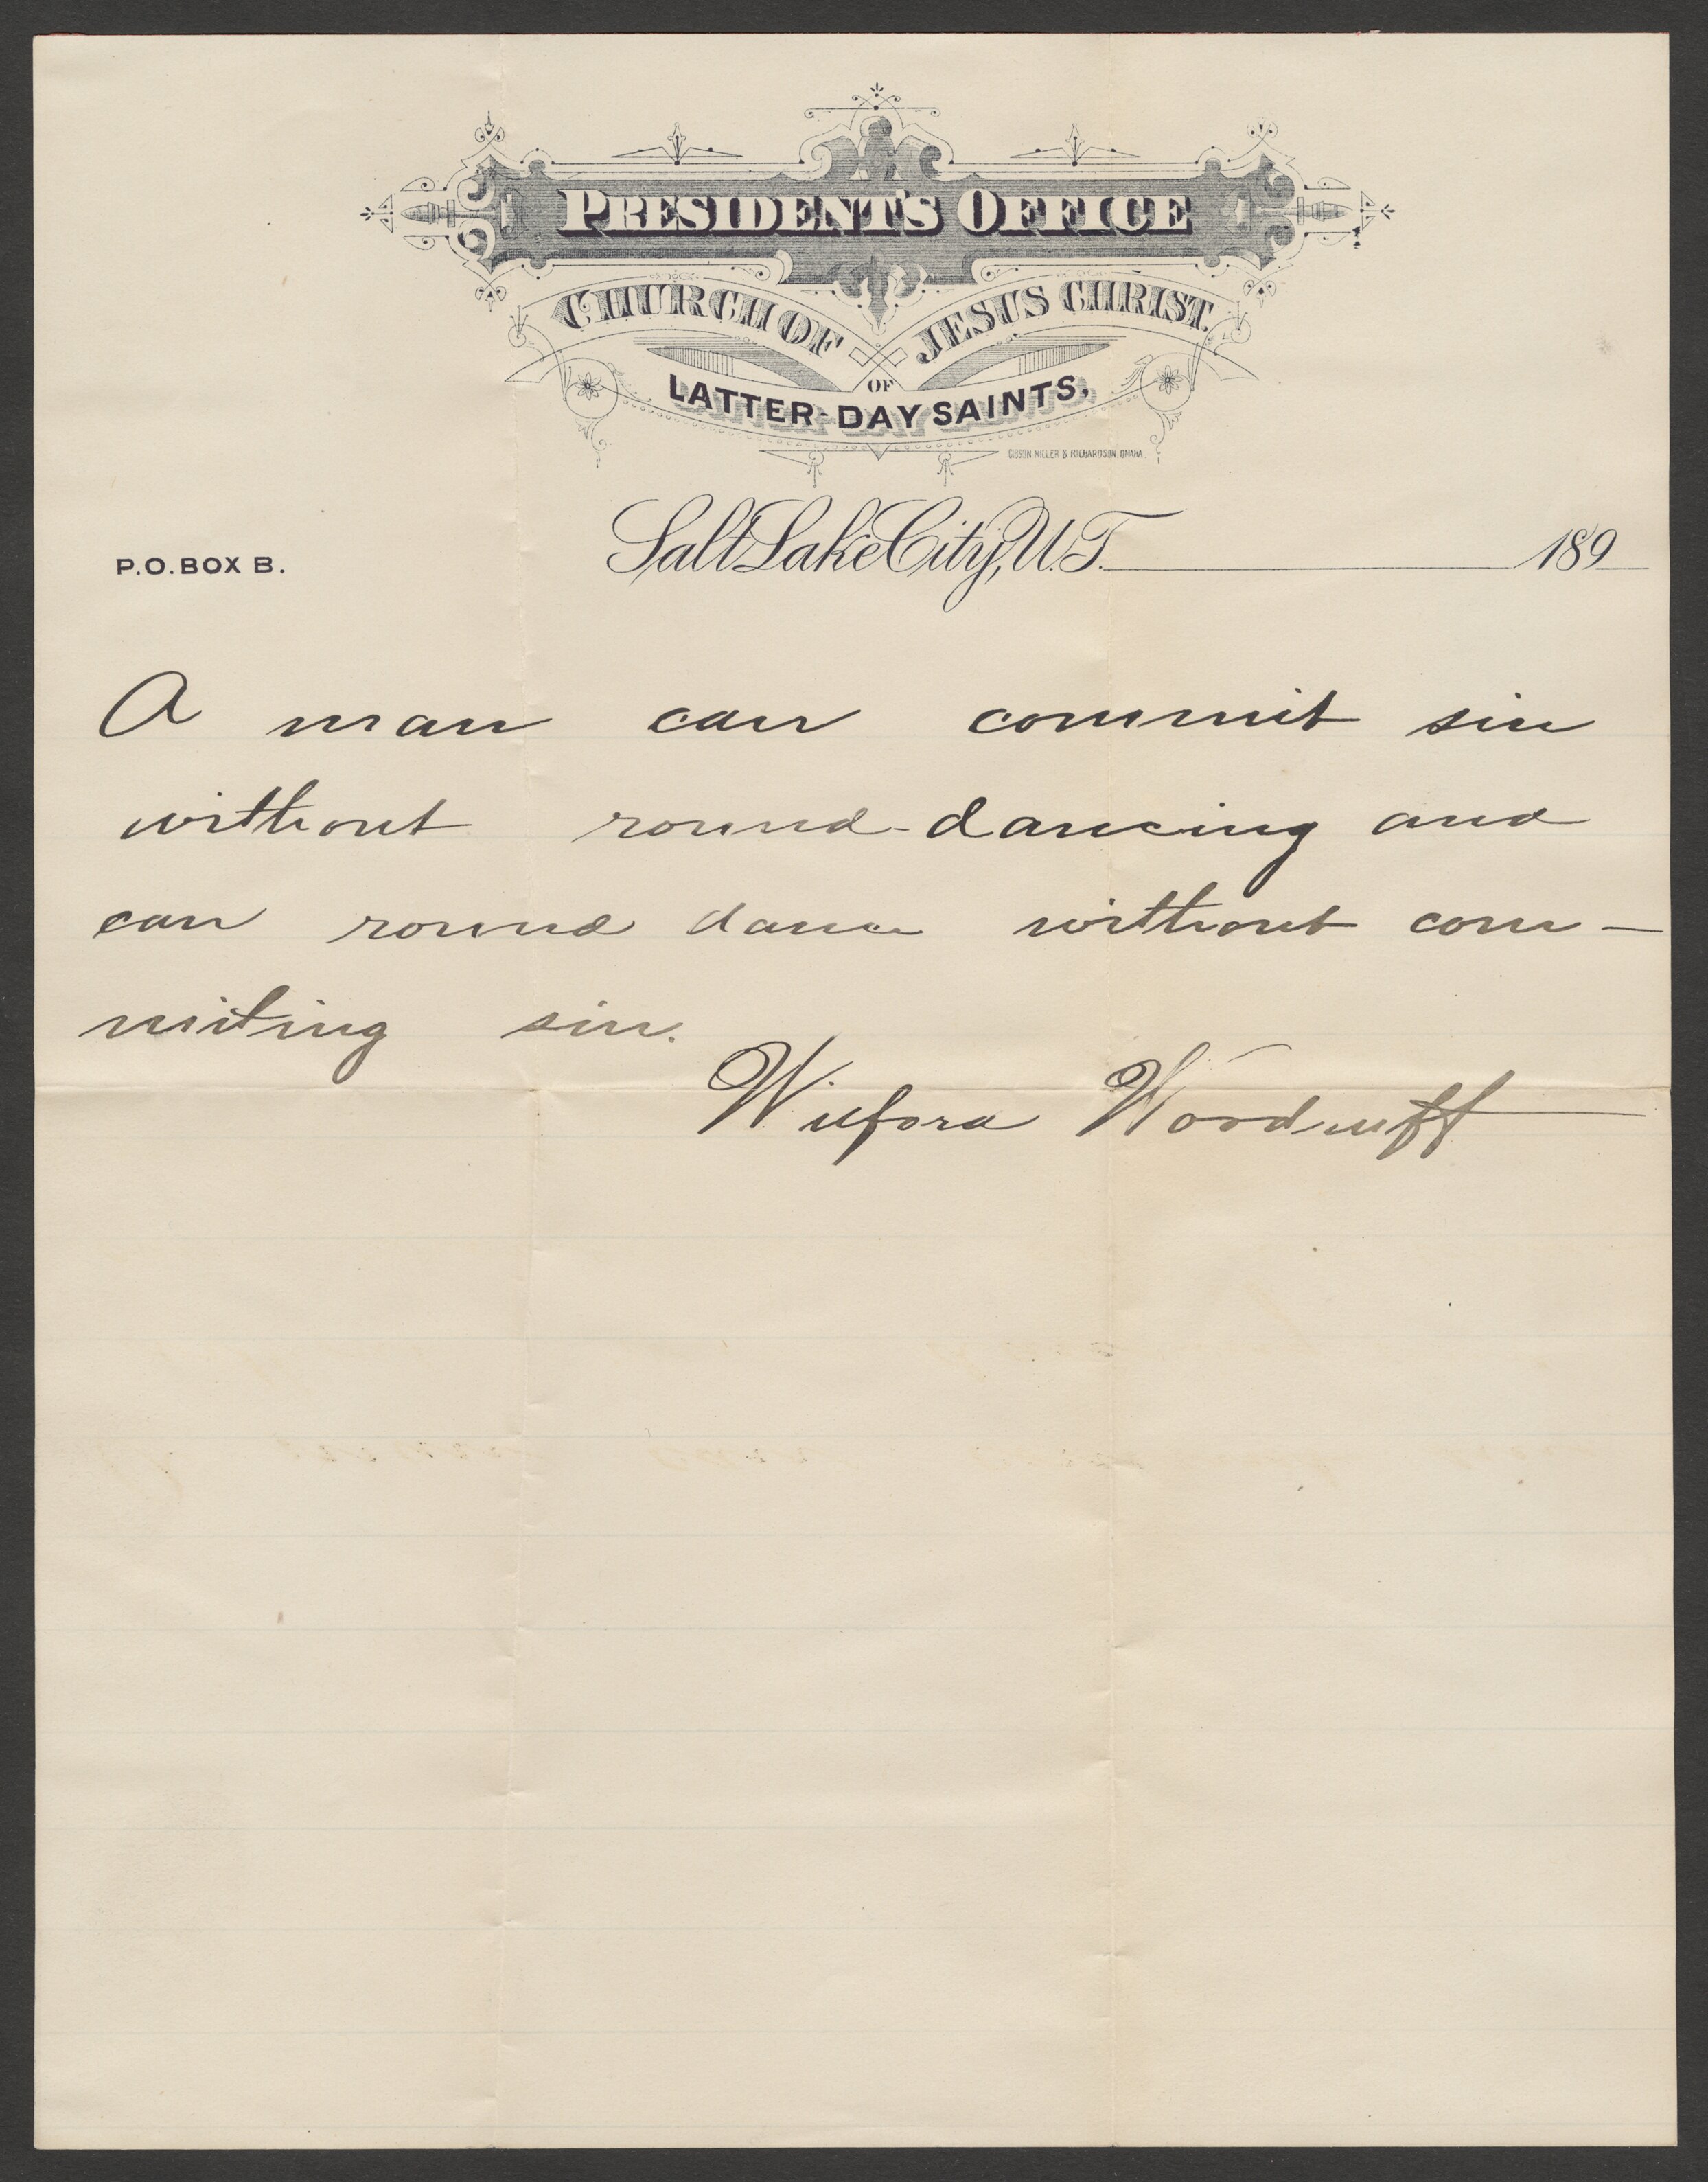 PRESIDENT'S OFFICE
CHURCH OF JESUS CHRIST
OF
LATTER-DAY SAINTS,
GIBSON MILLER & RICHARDSON, OMAHA.
P.O. BOX B.
Salt Lake City, U.T. 189
A man can commit sin
without round-dancing and
can round dance without com-
miting sin.
Wilford Woodruff